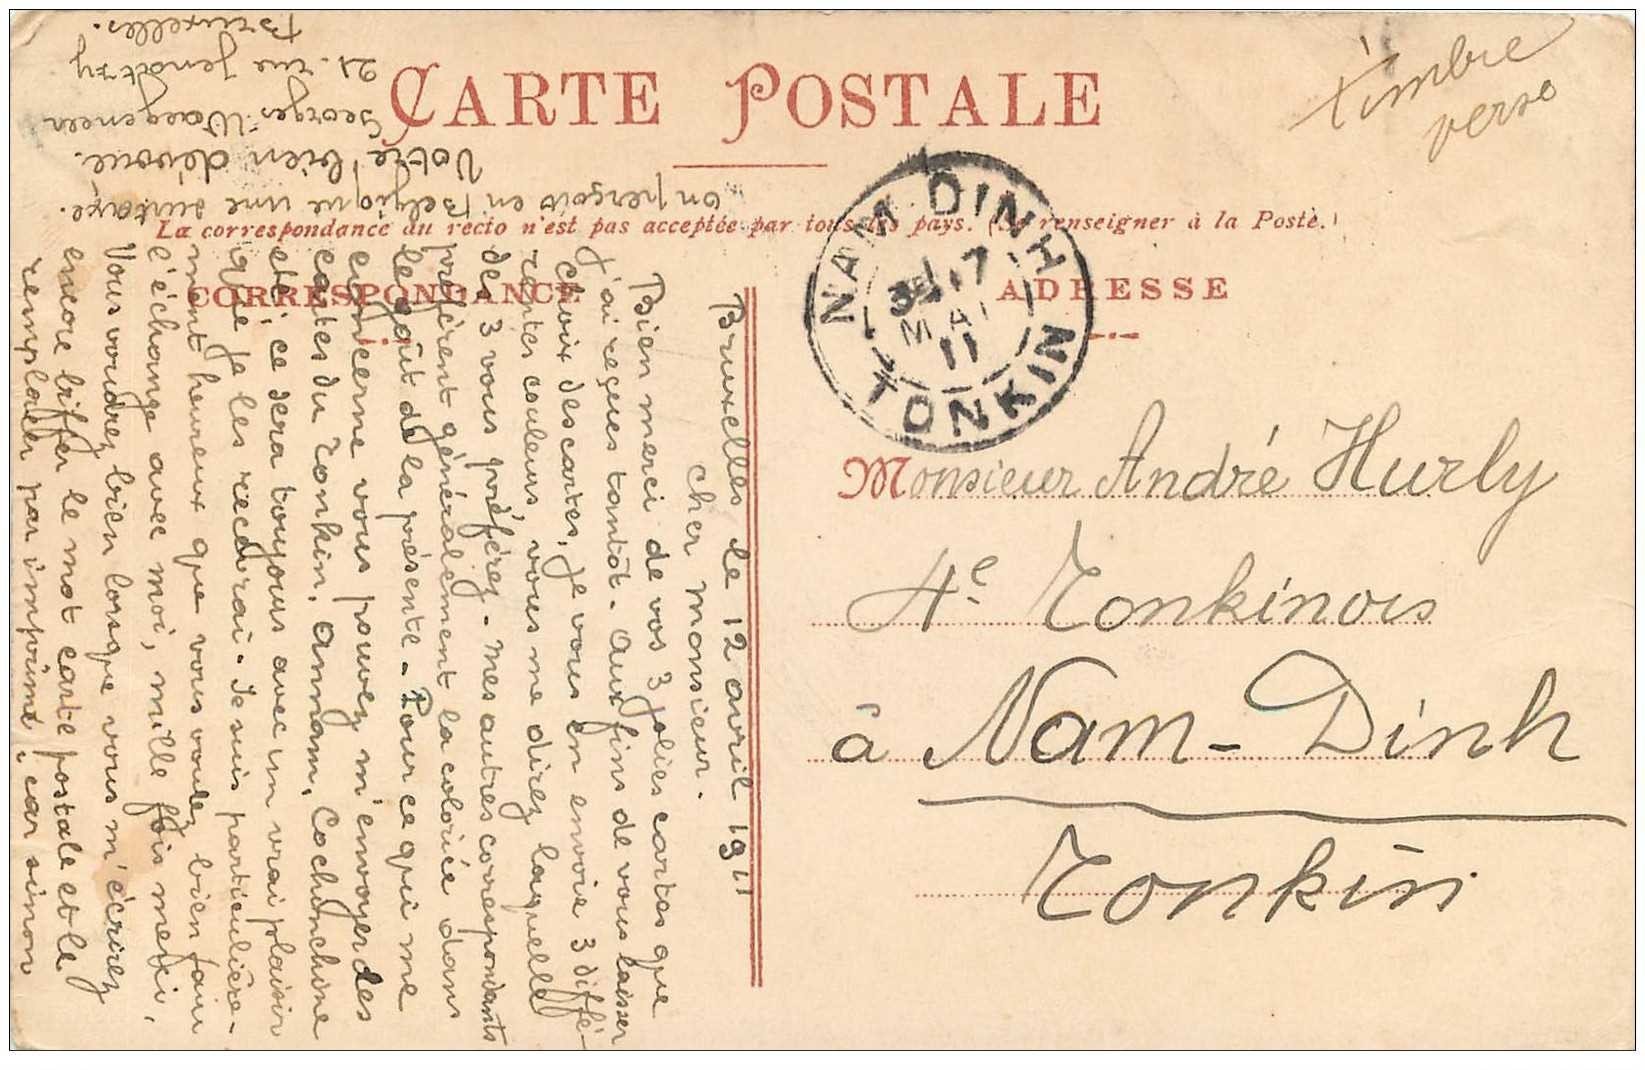 CARTE POSTALE
timbre
verso
La correspondance au recto n'est pas acceptée par tous les pays. (Se renseigner à la Poste.)
CORRESPONDANCE
ADRESSE
NAM DINH
7
MAI
11
TONKIN
Monsieur André Hurly
4e Tonkinois
à Nam-Dinh
Tonkin
Bruxelles le 12 avril 1911
Cher monsieur.
Bien merci de vos 3 jolies cartes que
j'ai reçues tantôt. Aux fins de vous laisser
choix des cartes, je vous en envoie 3 diffé-
rentes couleurs, vous me direz laquelle
des 3 vous préférez. mes autres correspondants
préfèrent généralement la coloriée dans
le goût de la présente. Pour ce qui me
concerne vous pouvez m'envoyer des
cartes du Tonkin, Annam, Cochinchine
etc, ce sera toujours avec un vrai plaisir
que je les recevrai. Je suis particulière-
ment heureux que vous voulez bien faire
l'échange avec moi, mille fois merci,
Vous voudrez bien lorsque vous m'écrirez
encore biffer le mot carte postale et le
remplacer par imprimé, car sinon
on perçoit en Belgique une surtaxe.
Votre bien dévoué.
Georges Waegeneer
21. rue Jenatzy
Bruxelles.